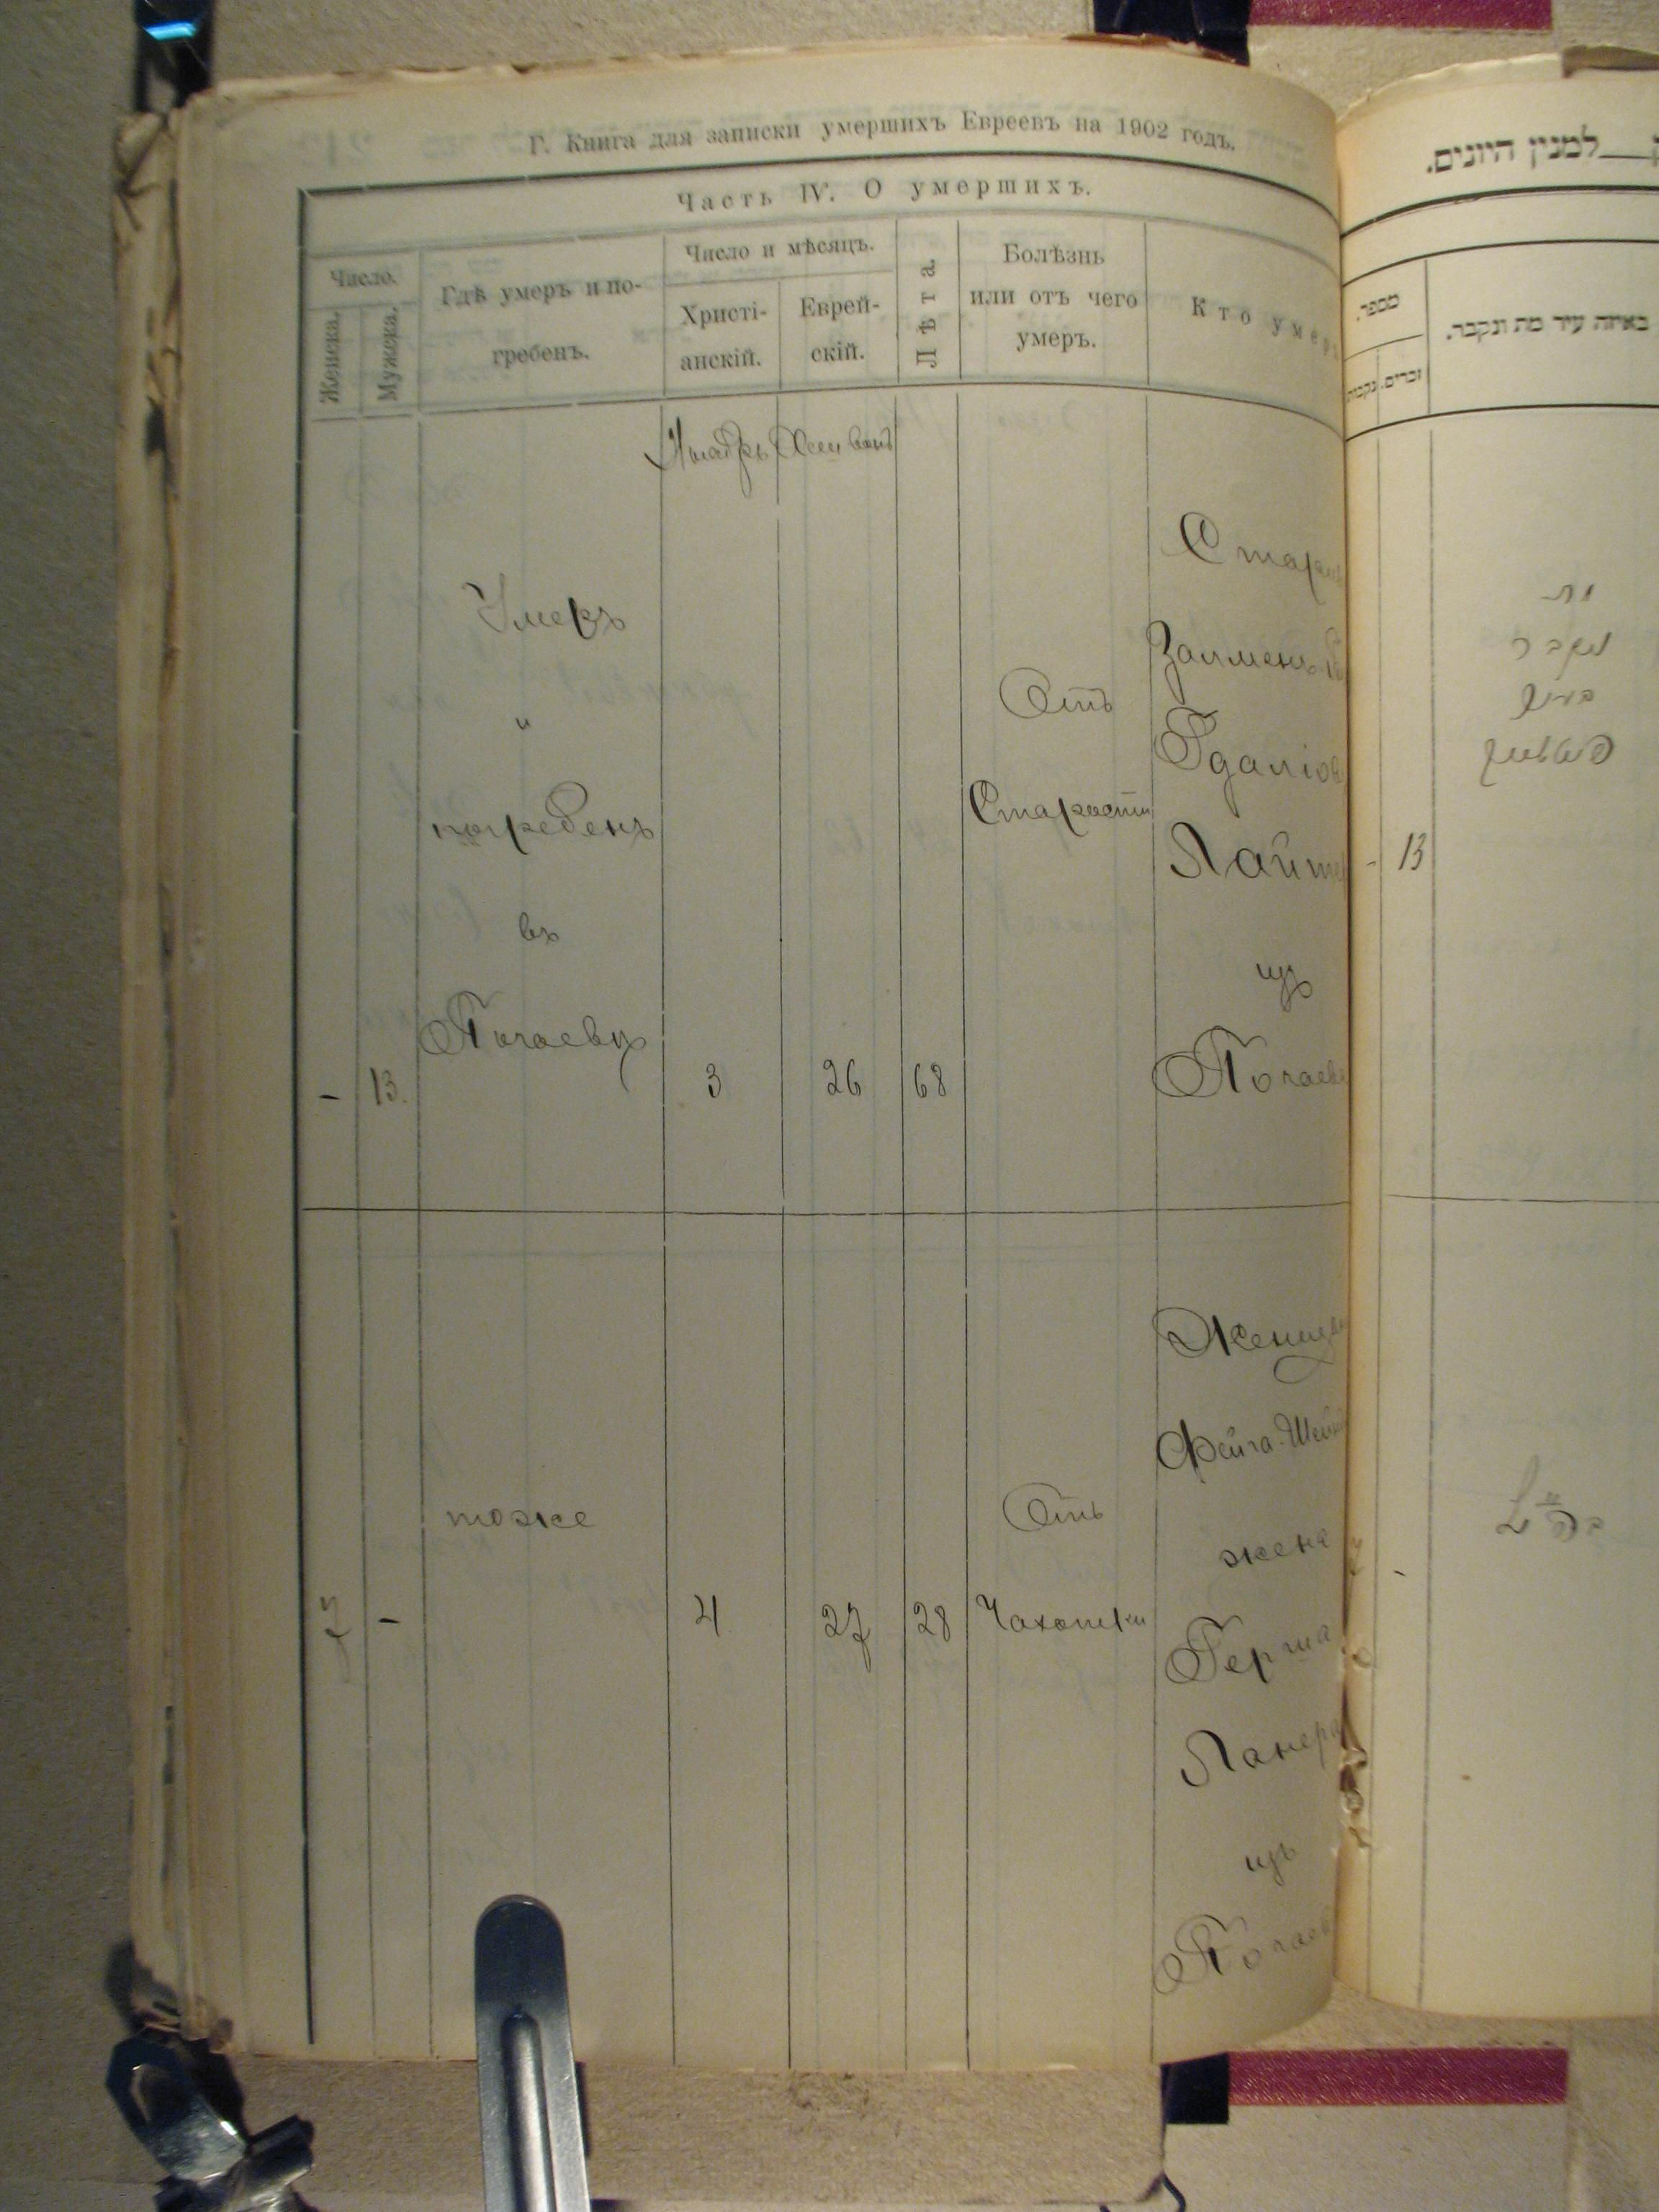 Г. Книга для записки умершихъ Евреевъ на 1902 годъ.
Часть IV. О умершихъ.
Число.
Женска.
Мужеска.
Гдѣ умеръ и по-
гребенъ.
Число и мѣсяцъ.
Христі-
анскій.
Еврей-
скій.
Лѣта.
Болѣзнь
или отъ чего
умеръ.
Кто умер
Умеръ
и
погребенъ
въ
Почаевѣ
- 13. 3 26 68
Отъ
Старости
Старикъ
Залменъ
Гдаліов
Лайте
изъ
Почаев
тоже
- 4 27 28
Отъ
Чахотки
Женщи
Фейга-Шей
жена
Герша
Ланера
изъ
Почаев
למנין היונים.
מספר.
זכרים. נקבות
באיזה עיר מת ונקבר.
מת
נקבר
בעיר
- 13
-